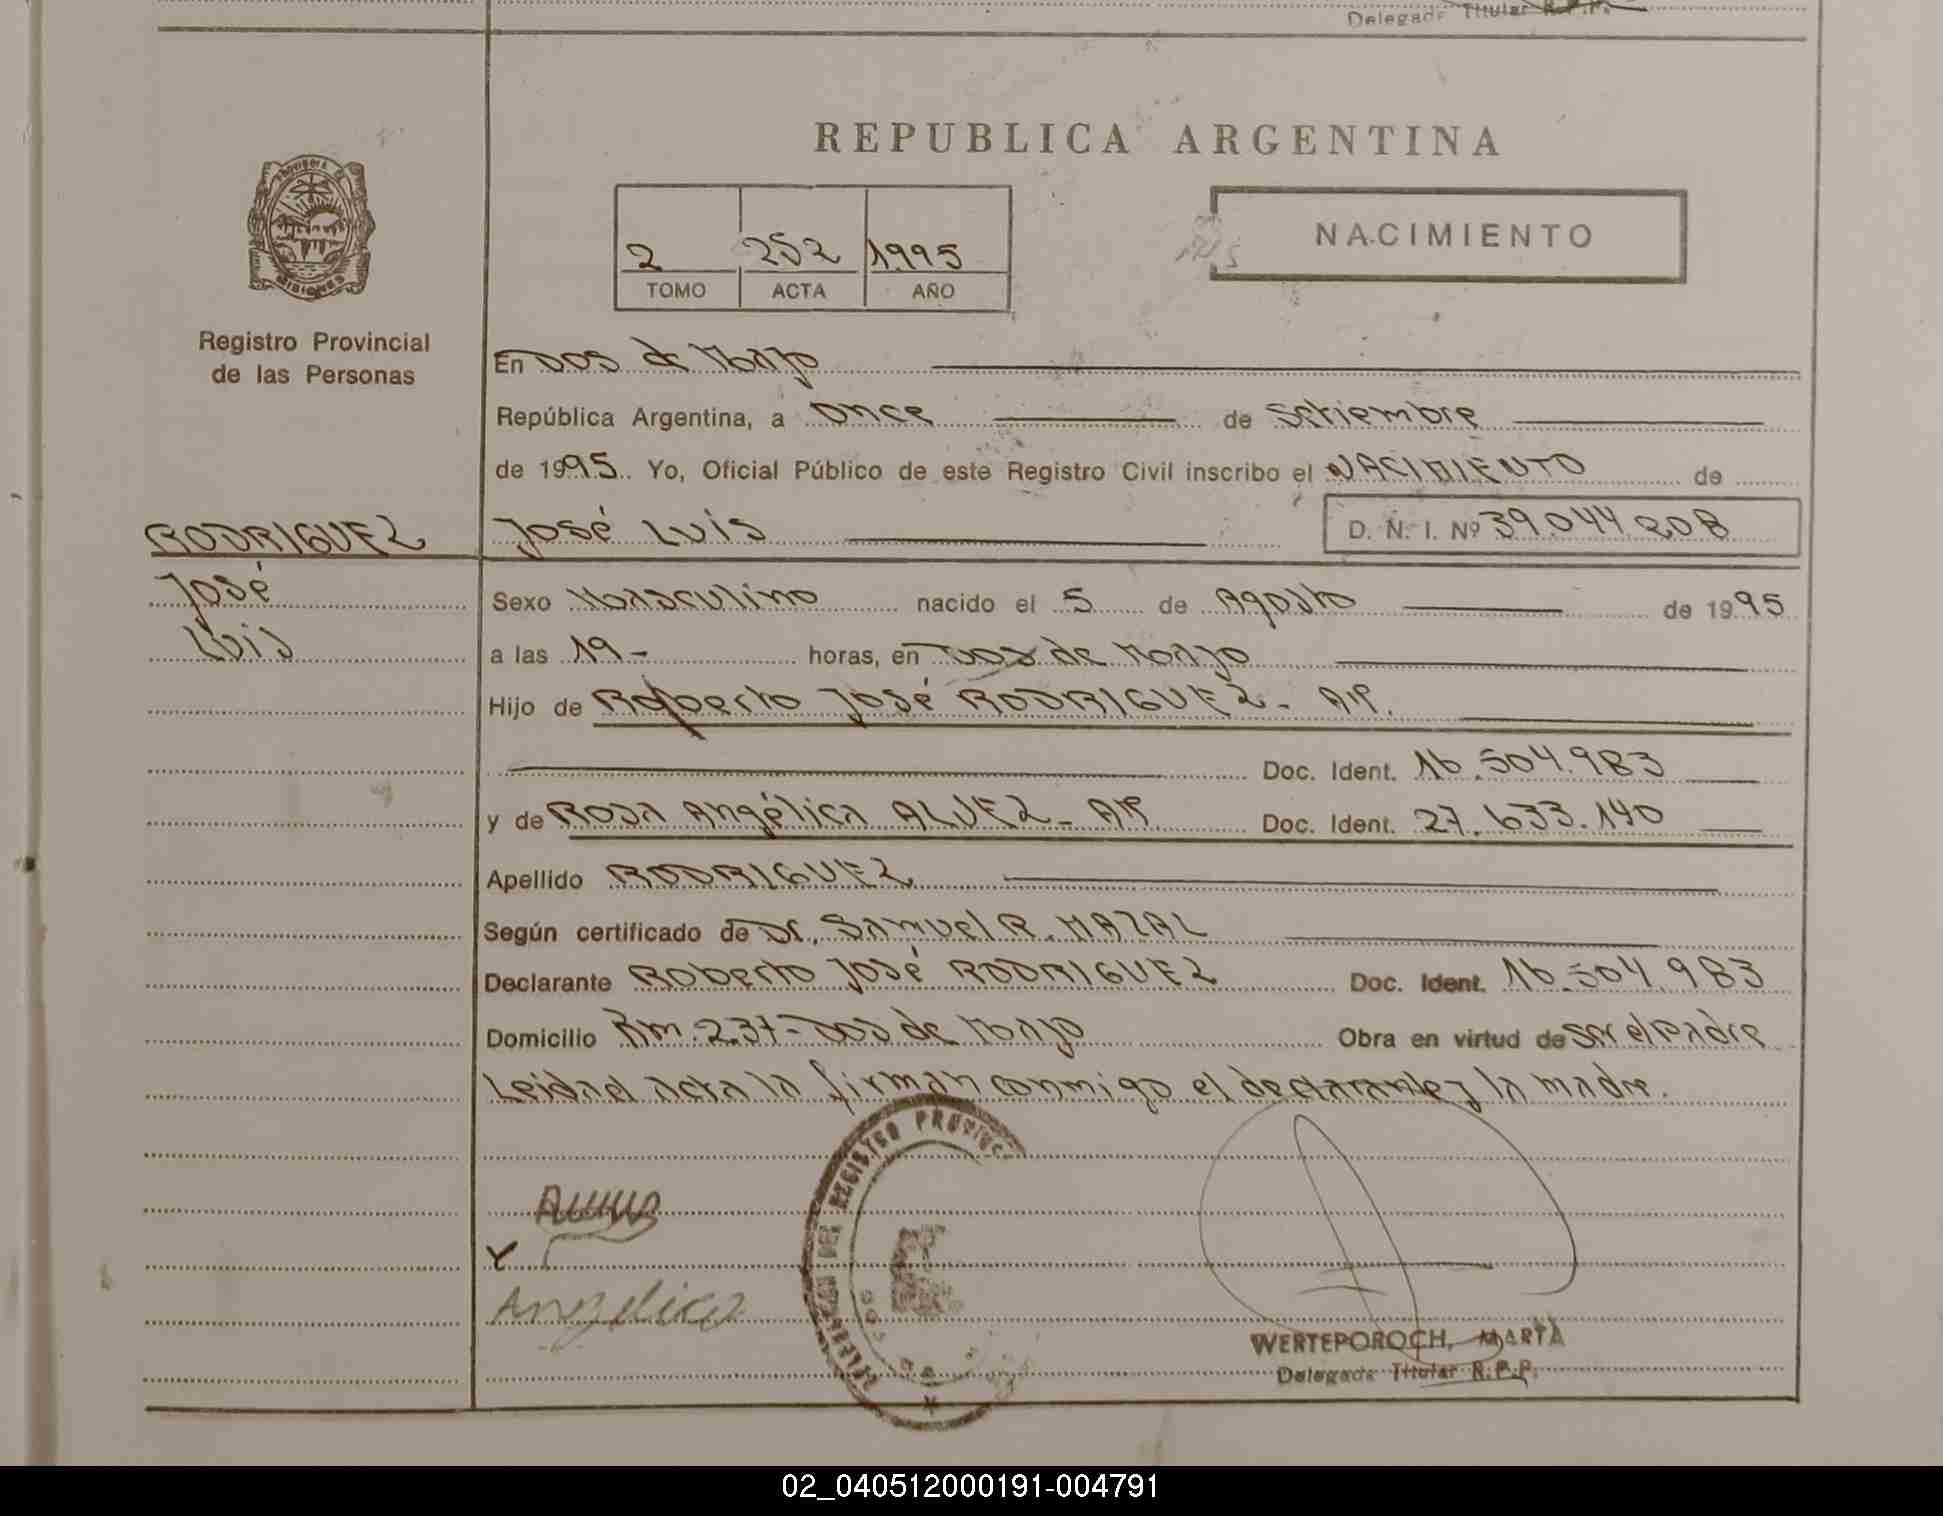 Delegada Titular R.P.P.
REPUBLICA ARGENTINA
PROVINCIA DE MISIONES
2 252 1995
TOMO ACTA AÑO
NACIMIENTO
Registro Provincial
de las Personas
En Dos de Mayo
República Argentina, a once de Setiembre
de 1995. Yo, Oficial Público de este Registro Civil inscribo el NACIMIENTO de
RODRIGUEZ
José Luis D. N. I. Nº 39.044.208
José
Luis
Sexo Masculino nacido el 5 de Agosto de 1995
a las 19- horas, en Dos de Mayo
Hijo de Roberto José RODRIGUEZ- AR.
Doc. Ident. 16.504.983
y de Rosa Angélica ALVEZ- AR. Doc. Ident. 27.633.140
Apellido RODRIGUEZ
Según certificado de Dr. Samuel R. MAZAL
Declarante Roberto José RODRIGUEZ Doc. Ident. 16.504.983
Domicilio Km. 237- Dos de Mayo Obra en virtud de ser el padre
Leida el acta la firman conmigo el declarante y la madre.
DELEGACION DEL REGISTRO PROVINC
DOS DE
Angelica
WERTEPOROCH, MARTA
Delegada Titular R.P.P.
02_040512000191-004791